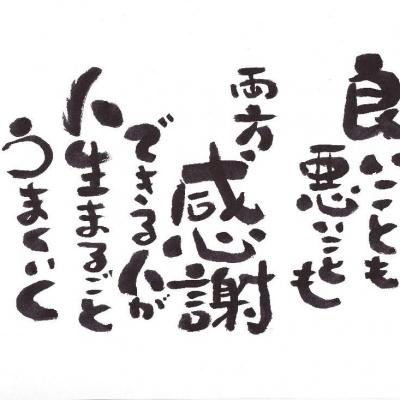 良いことも
悪いことも
両方
感謝
できる人が
人生まるごと
うまくいく